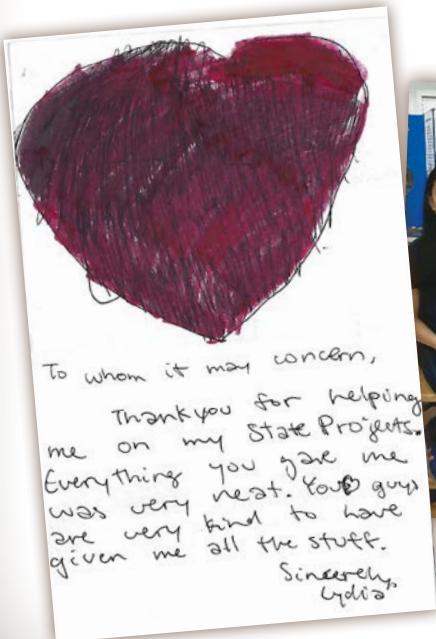 To whom it may concern,
Thankyou for helping
me on my State Projects.
Everything you gave me
was very neat. You guys
are very kind to have
given me all the stuff.
Sincerely,
Lydia